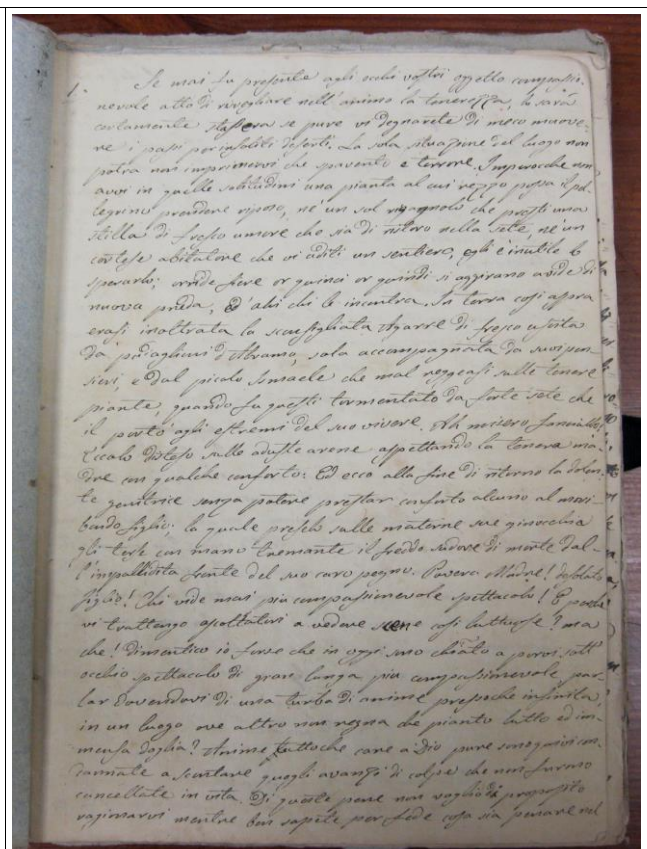 1. Se mai fu presente agli occhi vostri oggetto compassio-
nevole atto di risvegliare nell'animo la tenerezza, lo sarà
certamente stassera se pure vi degnarete di meco muove-
re i passi per insoliti deserti. La sola situazione del luogo non
potrà non imprimervi che spavento e terrore. Imperocche non
avvi in quelle solitudini una pianta al cui rezzo possa il pel-
legrino prendere riposo, ne' un sol rigagnolo che presti una
stilla di fresco umore che sia di ristoro nella sete, ne' un
cortese abitatore che vi additi un sentiero, egli è inutile lo
sperarlo: orride fiere or quinci or quindi si aggirano avide di
nuova preda, e d'ahi chi le incontra. In terra così aspra
erasi inoltrata la sconsigliata Agarre di fresco uscita
da padiglioni d'Abramo, sola accompagnata da suoi pen-
sieri, e dal picolo Ismaele che mal reggeasi sulle tenere
piante, quando fu questi tormentato da forte sete che
il portò agli estremi del suo vivere. Ah misero fanciullo!
Eccolo disteso sulle aduste arene aspettando la tenera ma-
dre con qualche conforto: Ed ecco alla fine di ritorno la dolen-
te genitrice senza potere prestar conforto alcuno al mori-
bondo figlio; la quale preselo sulle materne sue ginocchia
gli terse con mano tremante il freddo sudore di morte dal-
l'impallidita fronte del suo caro pegno. Povera Madre! desolato
figlio! Chi vide mai piu compassionevole spettacolo! E poiche
vi trattengo ascoltatori a vedere scene così luttuose? ma
che! dimentico io forse che in oggi son chiamato a porvi sott'
occhio spettacolo di gran lunga piu compassionevole par-
lar dovendovi di una turba di anime pressoche infinita,
in un luogo ove altro non regna che pianto lutto ed im-
mensa doglia? Anime tuttoche care a Dio pure sono quivi con-
dannate a scontare quegli avanzi di colpe che non furono
cancellate in vita. Di queste pene non voglio di proposito
ragionarvi mentre ben sapete per fede cosa sia penare nel